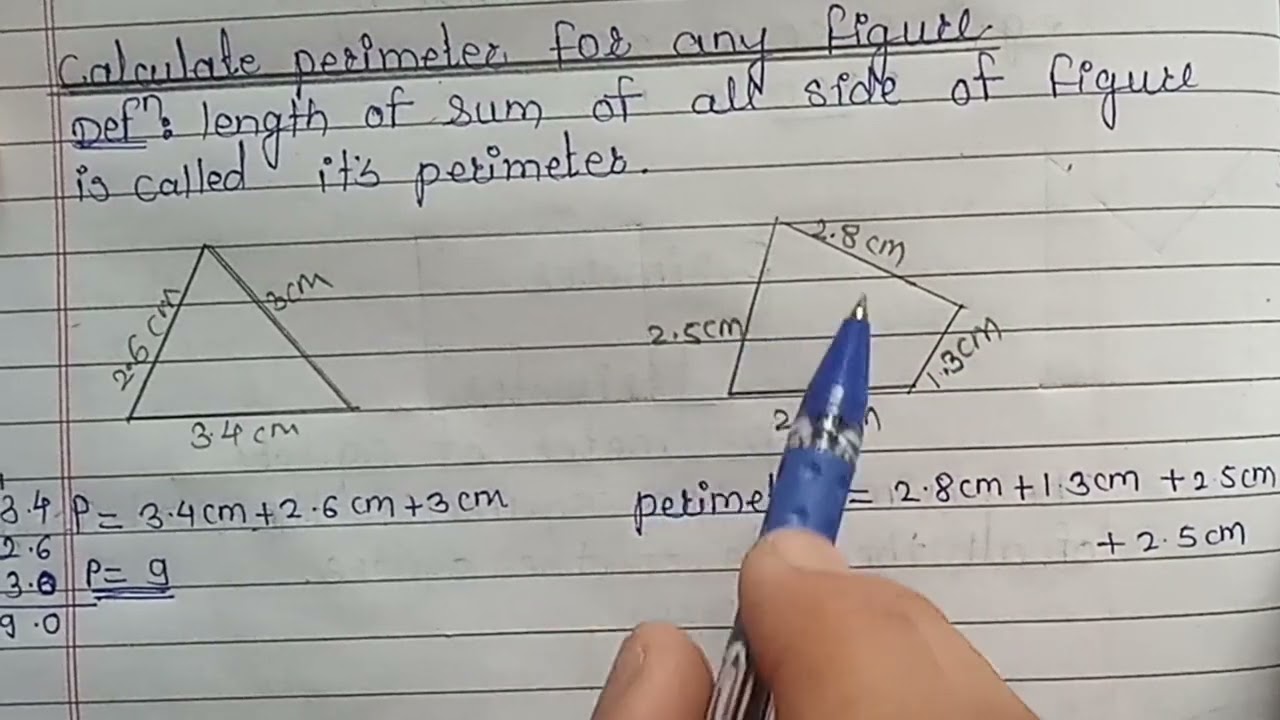 Calculate perimeter for any figure
Defⁿ: length of sum of all side of figure
is called it's perimeter.
2.8 cm
3cm
2.6 cm
2.5cm
1.3cm
3.4 cm
3.4 P= 3.4cm+2.6cm+3cm
= 2.8cm+1.3cm +2.5cm
2.6
+ 2.5cm
3.0 P= 9
9.0